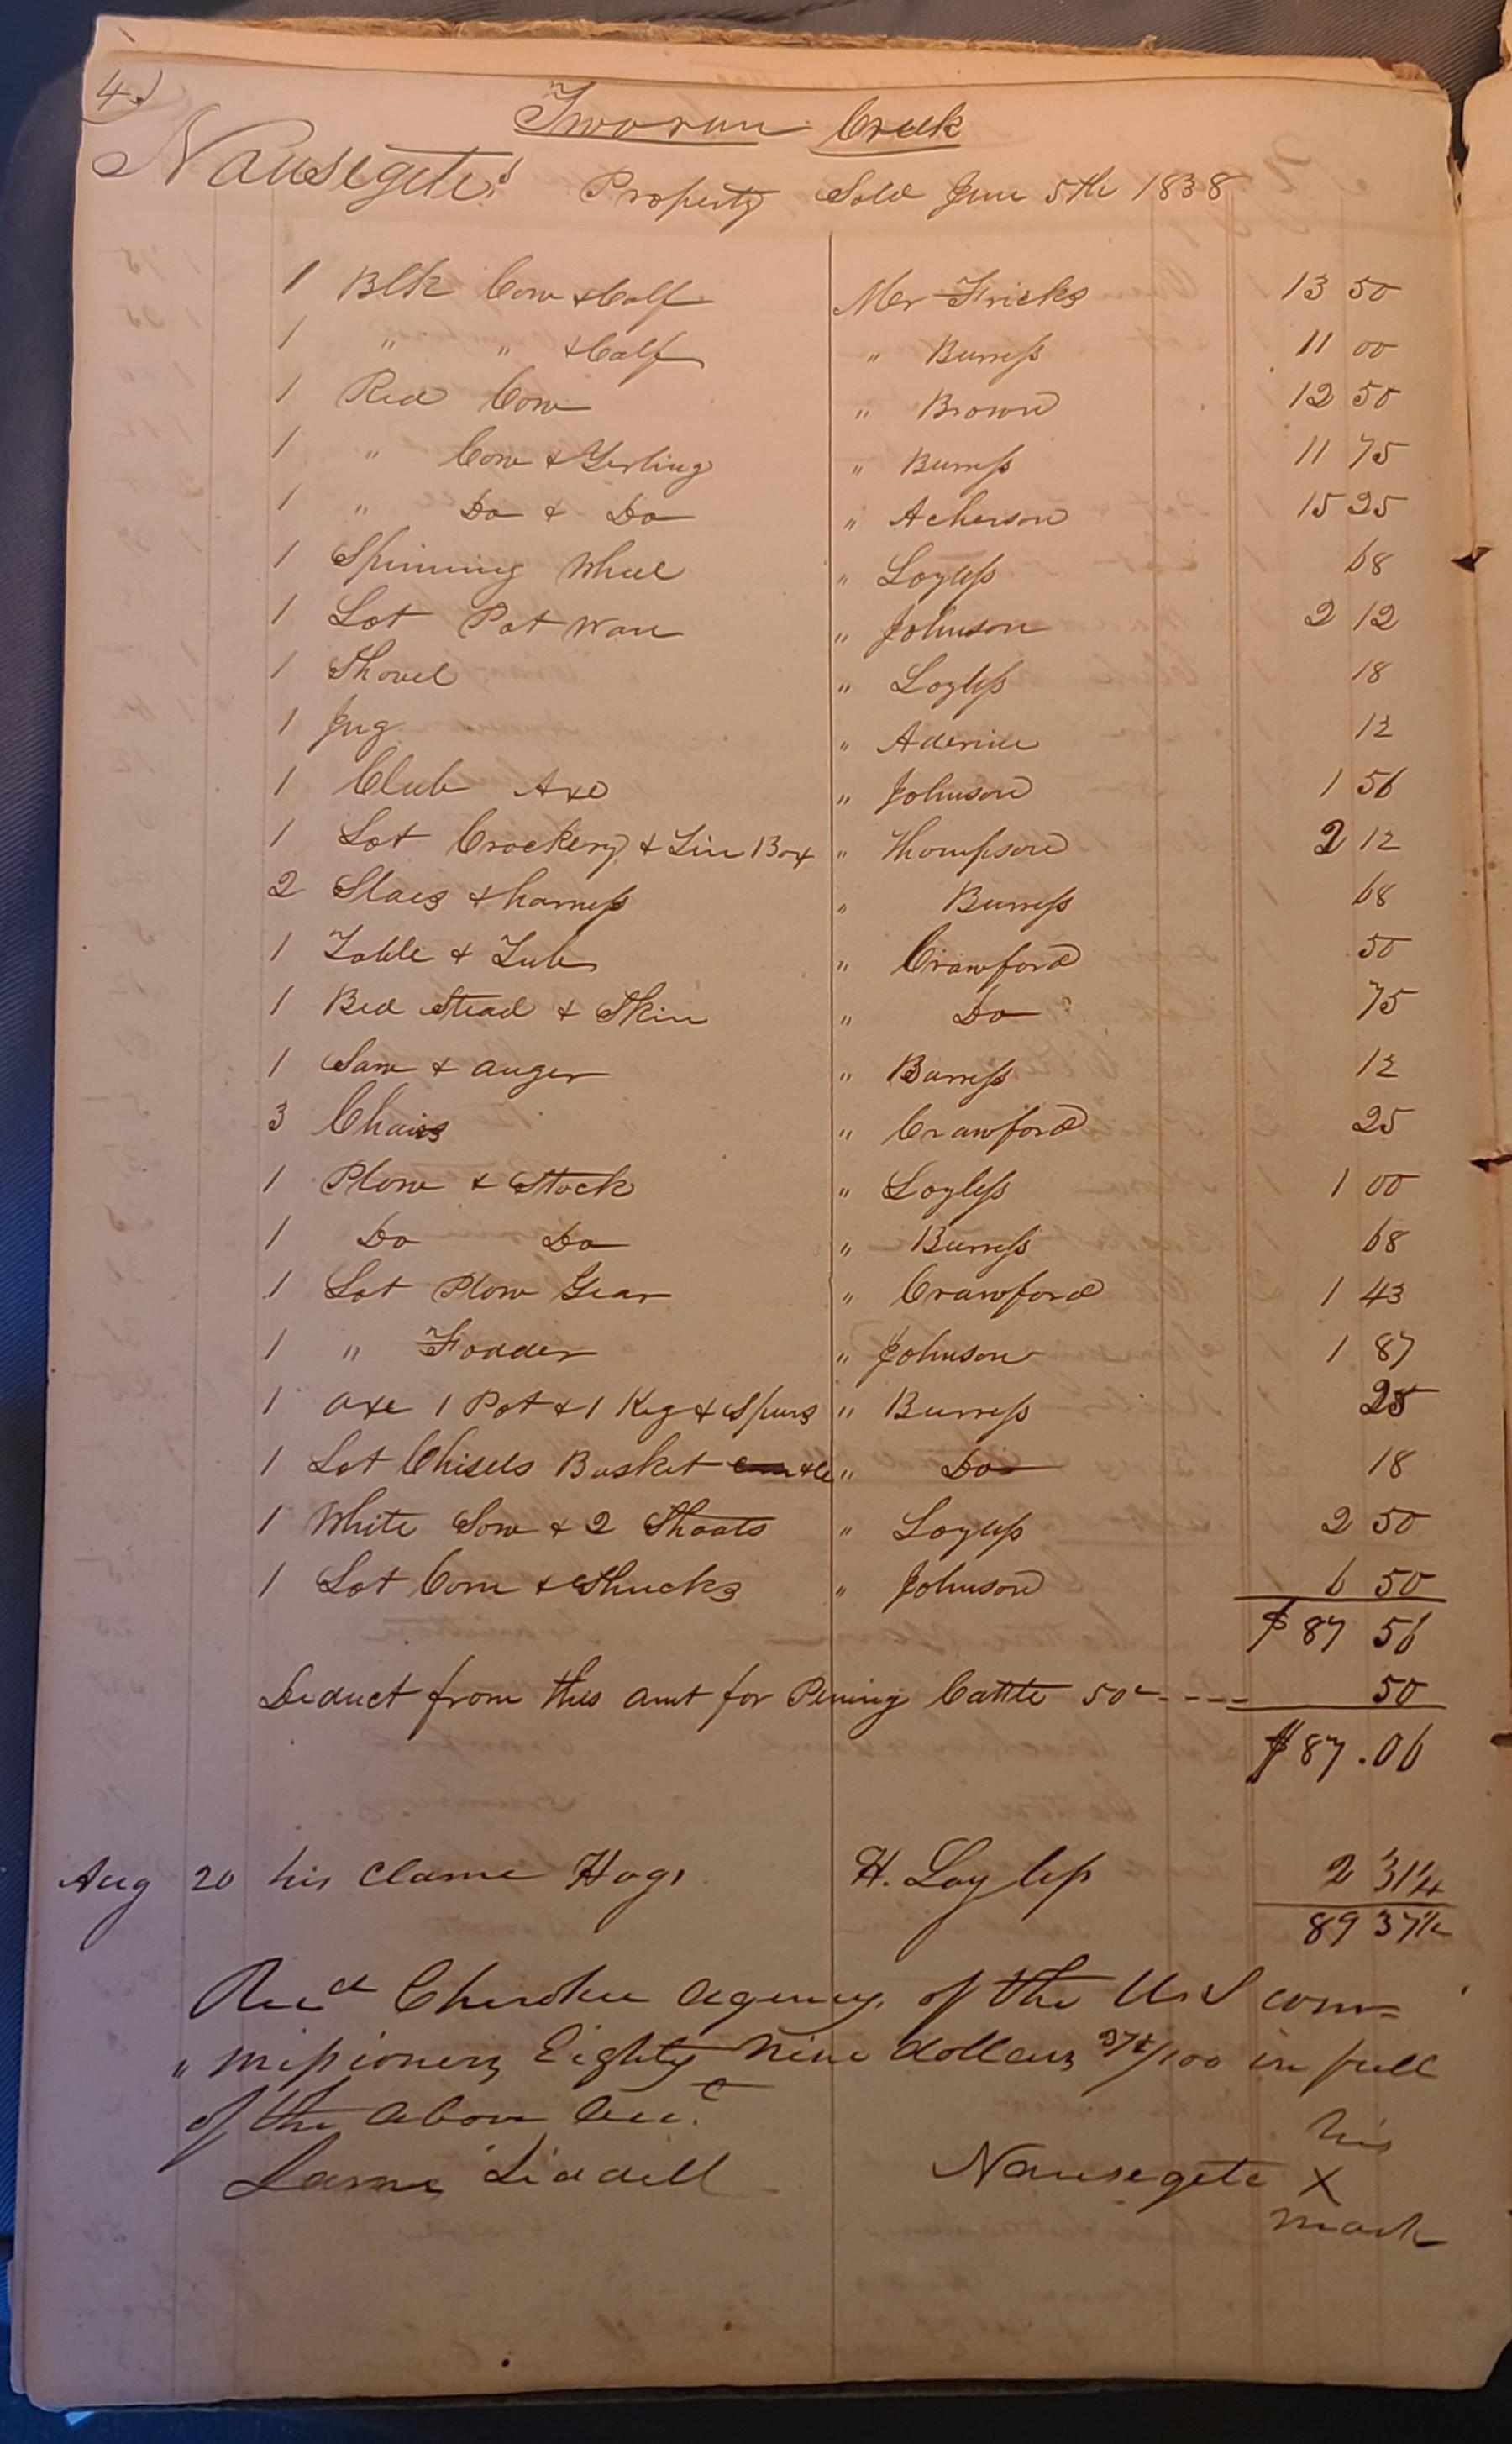 4
Tworun Creek
Nausegete's Property Sold June 5th 1838
1 Blk Cow & Calf Mr Fricks 13 50
1 " " & Calf " Burress 11 00
1 Red Cow " Brown 12 50
1 " Cow & Yerling " Burress 11 75
1 " Do & Do " Acherson 15 25
1 Spinning Wheel " Loyless 68
1 Lot Pot Ware " Johnson 2 12
1 Shovel " Loyless 18
1 Jug " 12
1 Club Axe " Johnson 1 56
1 Lot Crockery & Tin Box " Thompson 2 12
2 Slaes & harness " Burress 68
1 Table & Tub " Crawford 50
1 Bed Stead & Skin " Do 75
1 Saw & auger " Burress 12
3 Chairs " Crawford 25
1 Plow & Stock " Loyless 1 00
1 Do Do " Burress 68
1 Lot Plow Gear " Crawford 1 43
1 " Fodder " Johnson 1 87
1 axe 1 Pot & 1 Keg & Spurs " Burress 25
1 Lot Chisels Basket " Do 18
1 White Sow & 2 Shoats " Loyless 2 50
1 Lot Corn & Shucks " Johnson 6 50
$ 87 56
Deduct from this amt for Pening Cattle 50c ---- 50
$ 87.06
Aug 20 his Clame Hogs H. Loyless 2 31¼
89 37¼
Recd Cherokee agency of the U.S com=
" missioners Eighty Nine dollars 37¼/100 in full
of the above acc.t
his
Liddell Nausegete X
mark